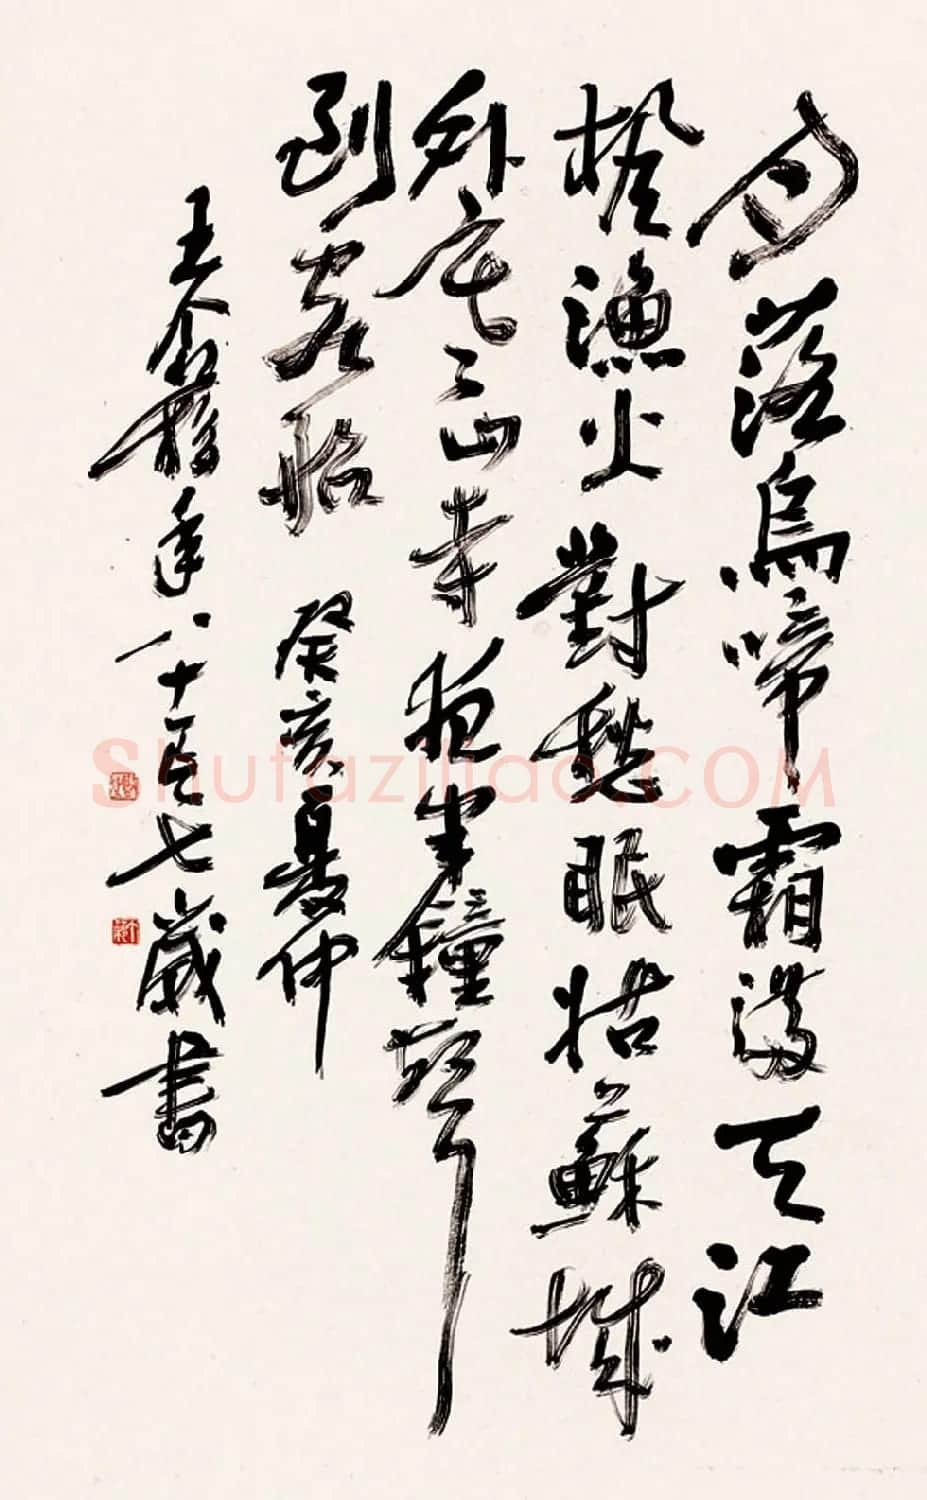 月落烏啼霜滿天江
楓漁火對愁眠姑蘇城
外寒山寺夜半鐘聲
到客船 癸亥夏仲
王个簃年八十有七歲書
Shufaziliao.COM